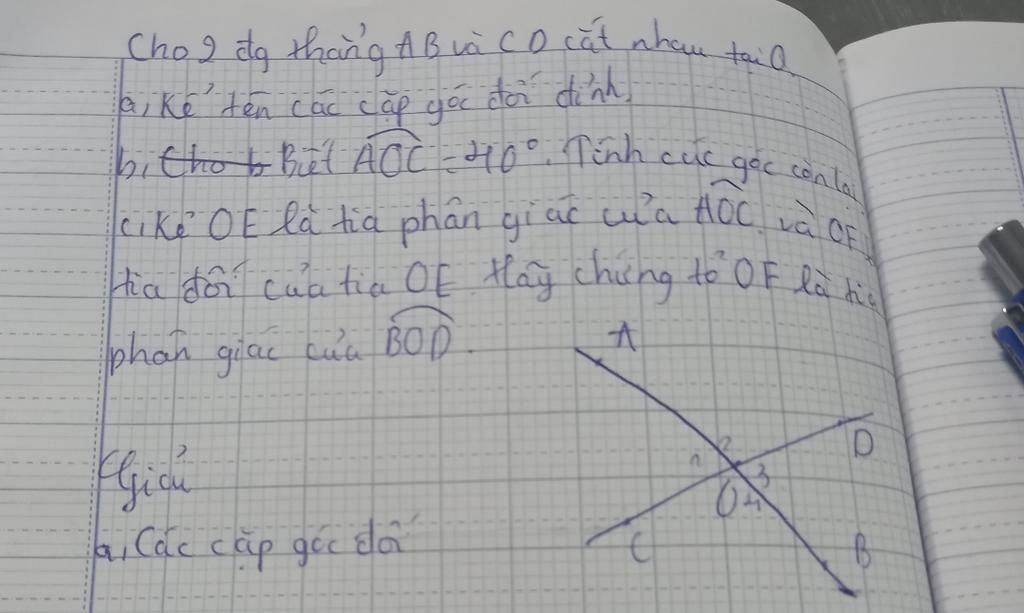 Cho 2 đg thẳng AB và CD cắt nhau tại O.
a, Kể tên các cặp góc đối đỉnh
b, Cho b Biết AOC = 40°. Tính các góc còn lại
c, Kẻ OE là tia phân giác của AOC và OF là
tia đối của tia OE. Hãy chứng tỏ OF là tia
phân giác của BOD.
A
2
1
D
3
Giải
O 4
a, Các cặp góc đối
C
B